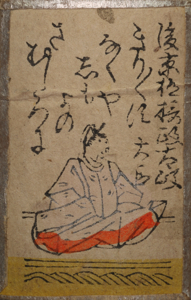 後京極摂政太政
大臣
きり／＼す
なくや
しも
よの
さむしろに